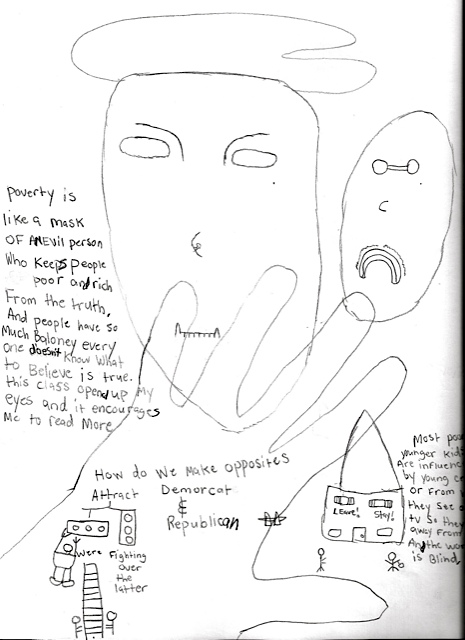 poverty is
like a mask
OF AN Evil person
Who Keeps People
poor and rich
From the truth,
And people have so
Much Baloney every
one doesnt Know What
to Believe is true.
this class opend up My
eyes and it encourages
Me to read More
How do We Make opposites
Attract Demorcat
&
Republican
Were Fighting
over
the
latter
Leave! Stay!
Most poo
younger kid
Are influenc
by young c
or From
they see o
tv so the
away From
And the wo
is Blind.